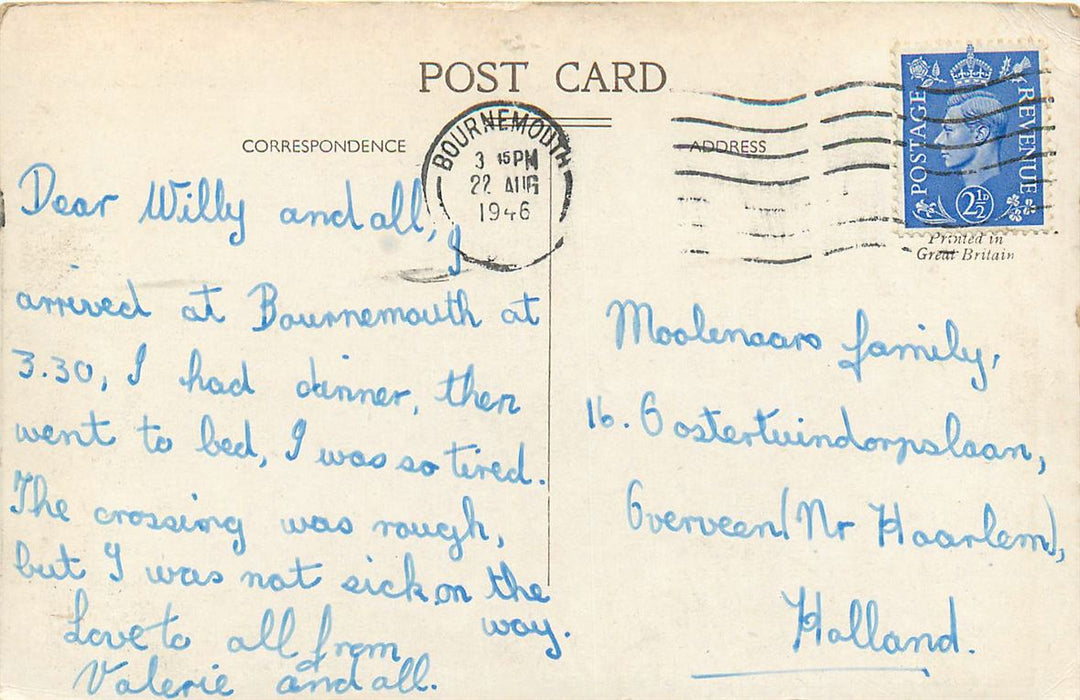 POST CARD
CORRESPONDENCE
ADDRESS
BOURNEMOUTH
3 45PM
22 AUG
1946
POSTAGE
REVENUE
2½D
Printed in
Great Britain
Dear Willy and all, I
arrived at Bournemouth at
3.30, I had dinner, then
went to bed, I was so tired.
The crossing was rough,
but I was not sick on the
way.
Love to all from
Valerie and all.
Moolenaars family,
16. Oostertuindorpslaan,
Overveen (Nr Haarlem),
Holland.